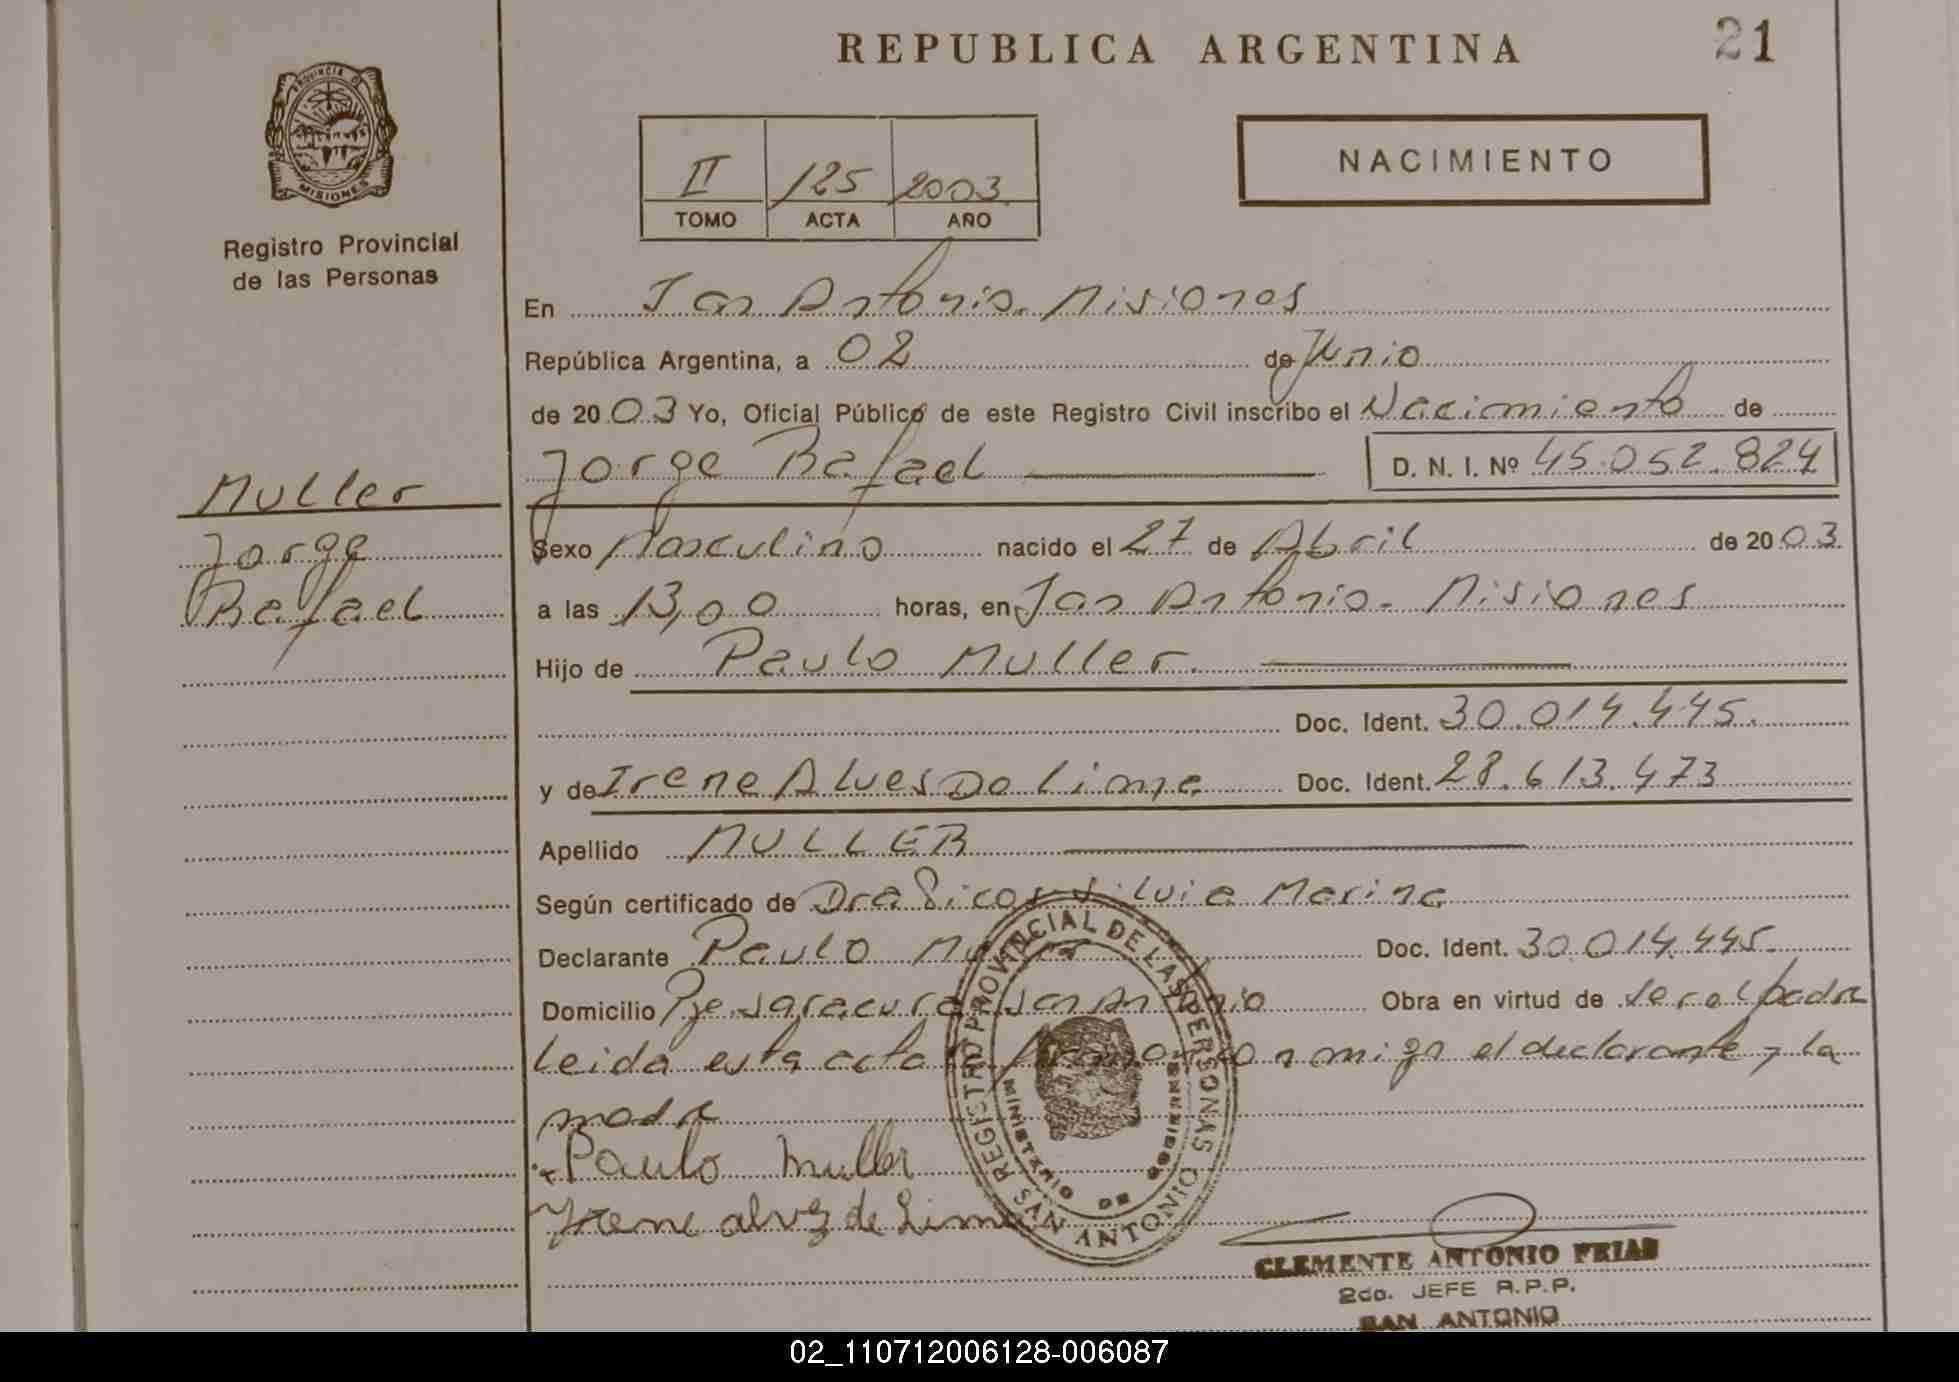 REPUBLICA ARGENTINA
21
PROVINCIA DE
MISIONES
Registro Provincial
de las Personas
II 125 2003
TOMO ACTA AÑO
NACIMIENTO
En San Antonio. Misiones
República Argentina, a 02 de Junio
de 2003 Yo, Oficial Público de este Registro Civil inscribo el Nacimiento de
Jorge Rafael D. N. I. Nº 45.052.824
Muller
Jorge
Rafael
Sexo Masculino nacido el 27 de Abril de 2003
a las 13,00 horas, en San Antonio. Misiones
Hijo de Paulo Muller
Doc. Ident. 30.014.445.
y de Irene Alves Do Lima Doc. Ident. 28.613.473
Apellido MULLER
Según certificado de Dra Silvia Marina
Declarante Paulo Muller Doc. Ident. 30.014.445.
Domicilio San Antonio Obra en virtud de ser el padre
Leida esta acta la firman conmigo el declarante y la
madre
Paulo Muller
Yrene alvez de Lima
REGISTRO PROVINCIAL DE LAS PERSONAS
MINISTERIO DE GOBIERNO
SAN ANTONIO
CLEMENTE ANTONIO FRIAS
2do. JEFE R.P.P.
SAN ANTONIO
02_110712006128-006087